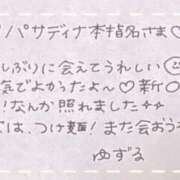 パサディナ本指名さま♡
しぶりに会えてうれしい☺
気でよかったよん♡新○
!なんか照れました✦✦
は、つけ麺!また会おう
ゆずる